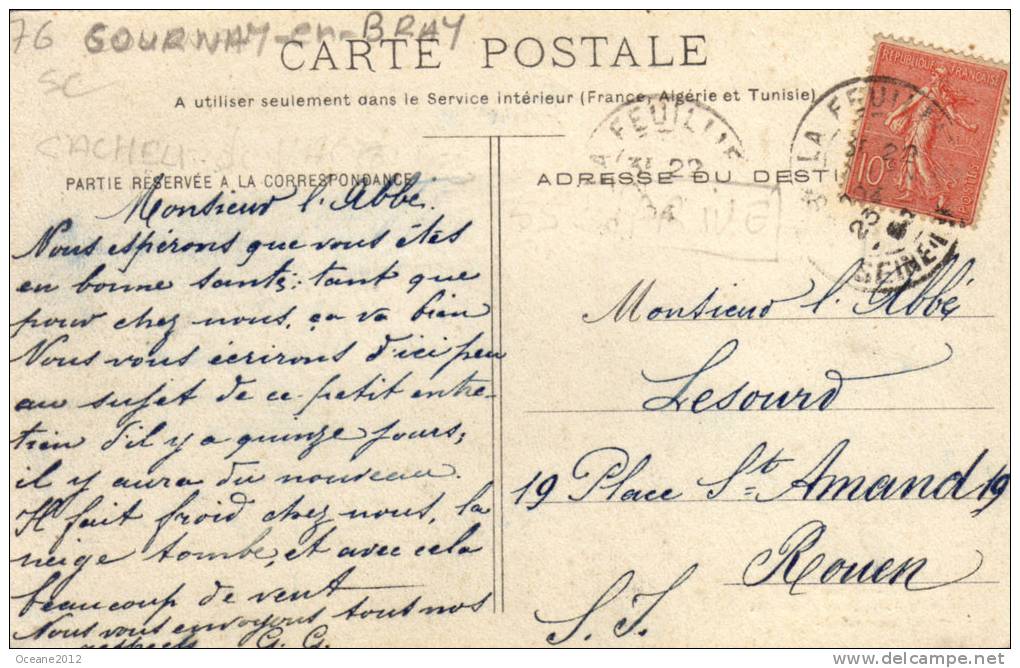 76 GOURNAY-en-BRAY
SC
CARTE POSTALE
A utiliser seulement dans le Service intérieur (France, Algérie et Tunisie)
PARTIE RÉSERVÉE A LA CORRESPONDANCE
Monsieur l'Abbé.
Nous espérons que vous êtes
en bonne santé: tant que
pour chez nous, ça va bien
Nous vous écrirons d'ici peu
au sujet de ce petit entre-
tien d'il y a quinze jours;
il y aura du nouveau.
Il fait froid chez nous, la
neige tombe, et avec cela
beaucoup de vent
Nous vous envoyons tout nos
respects G. G.
ADRESSE DU DESTI
Monsieur l'Abbé
Lesourd
19 Place St Amand 19
Rouen
S. I.
REPUBLIQUE FRANÇAISE
10
LA FEUILLIE
22
SEINE
LA FEUILLIE
22
Oceane2012
delcampe.net